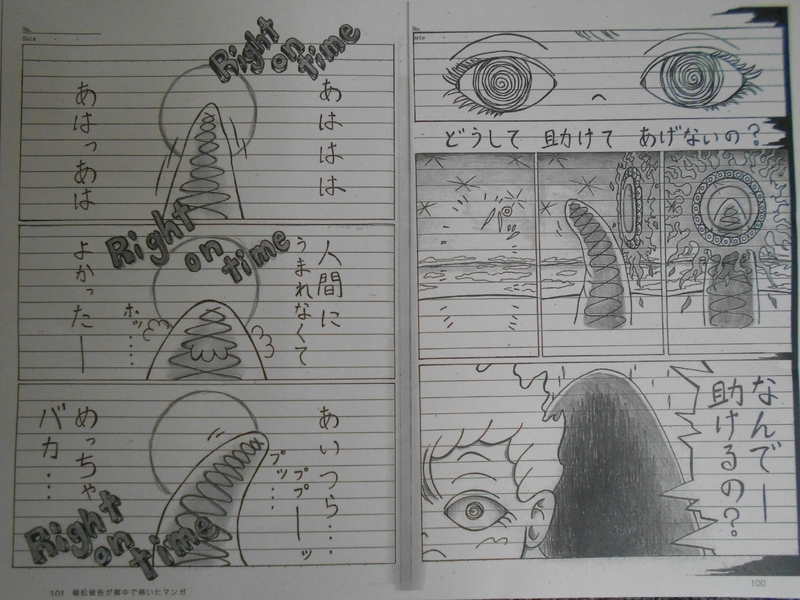 No.
Date
どうして 助けて あげないの?
なんでー
助けるの?
100
No.
Date
Right on time
あははは
あはっあは
Right on time
人間に
うまれなくて
よかったー
ホッ……
Right on time
あいつら…
プッ…
ププーーッ
めっちゃ
バカ…
101 植松被告が獄中で描いたマンガ